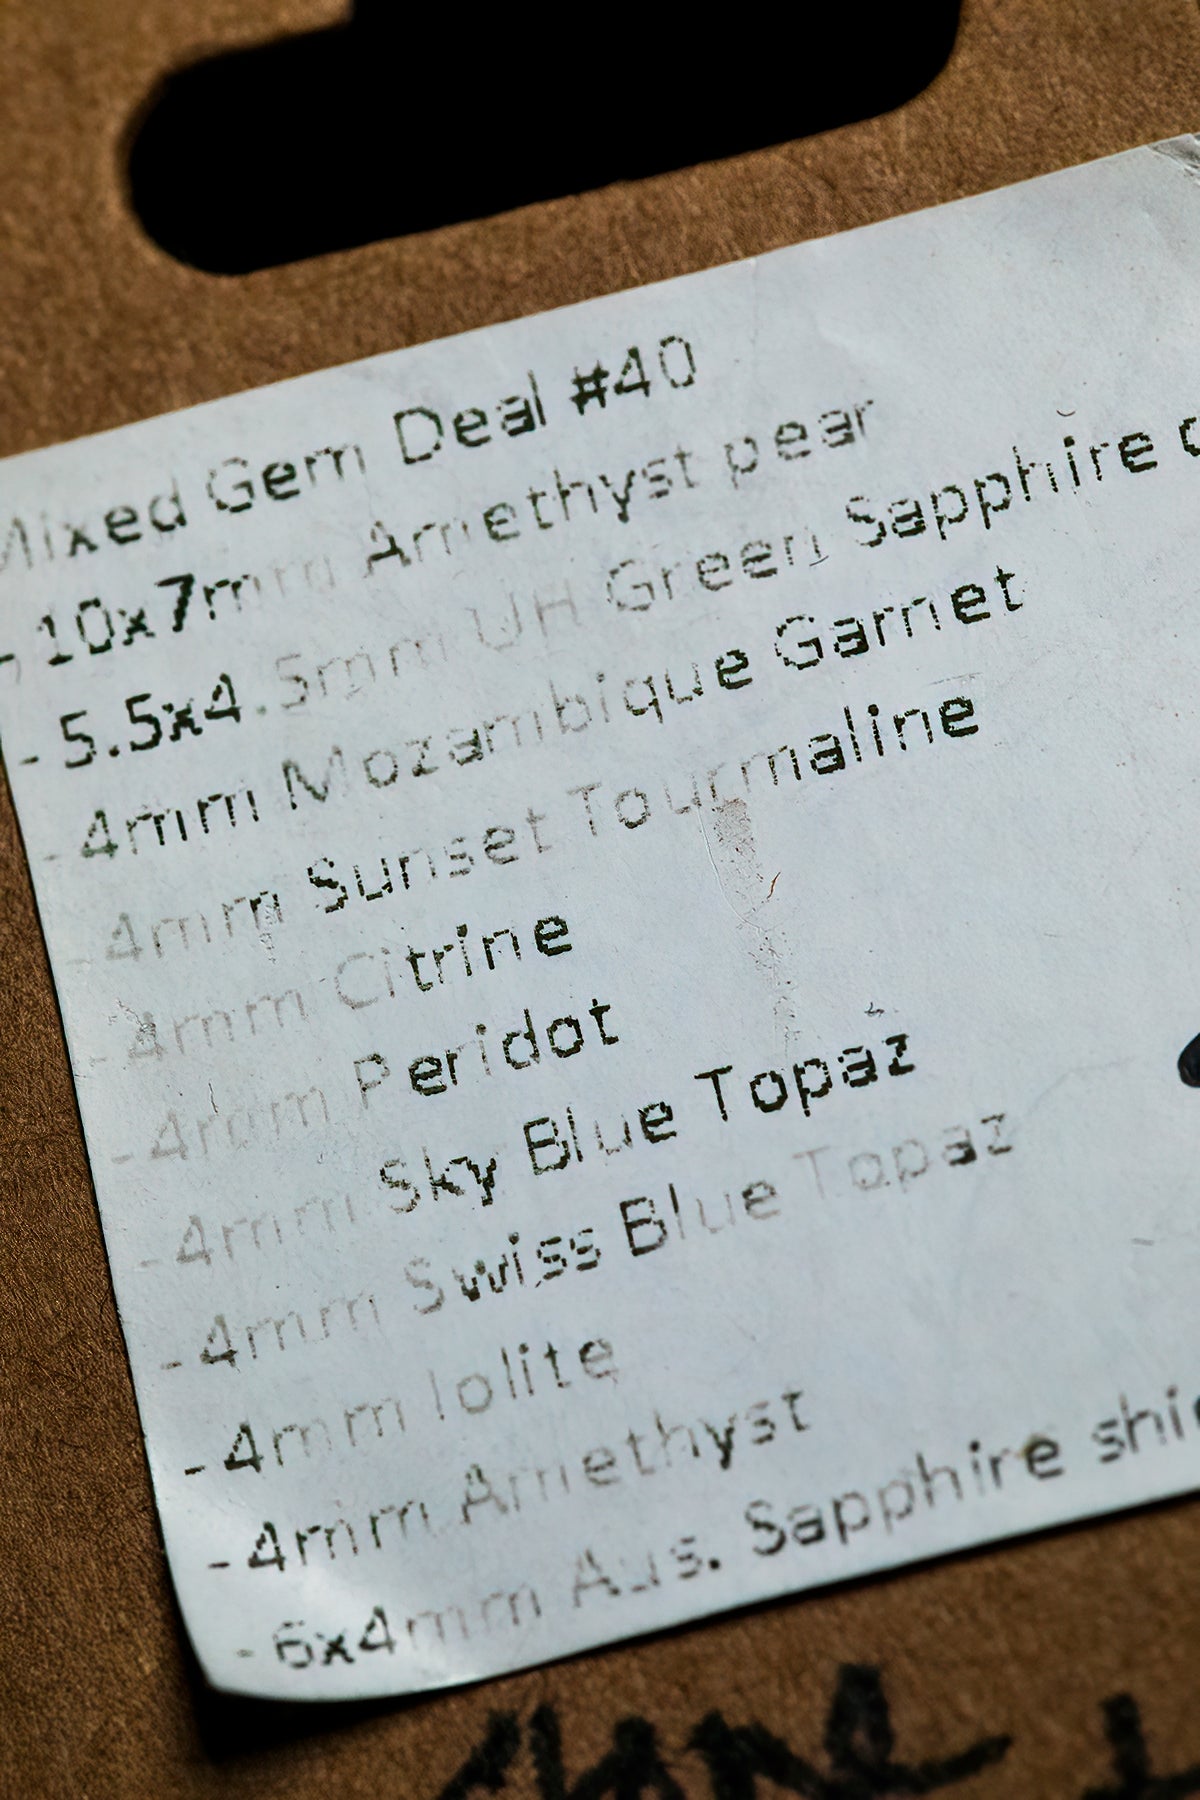 Mixed Gem Deal #40
- 10x7mm Amethyst pear
- 5.5x4.5mm UH Green Sapphire
- 4mm Mozambique Garnet
- 4mm Sunset Tourmaline
- 4mm Citrine
- 4mm Peridot
- 4mm Sky Blue Topaz
- 4mm Swiss Blue Topaz
- 4mm Iolite
- 4mm Amethyst
- 6x4mm Aus. Sapphire